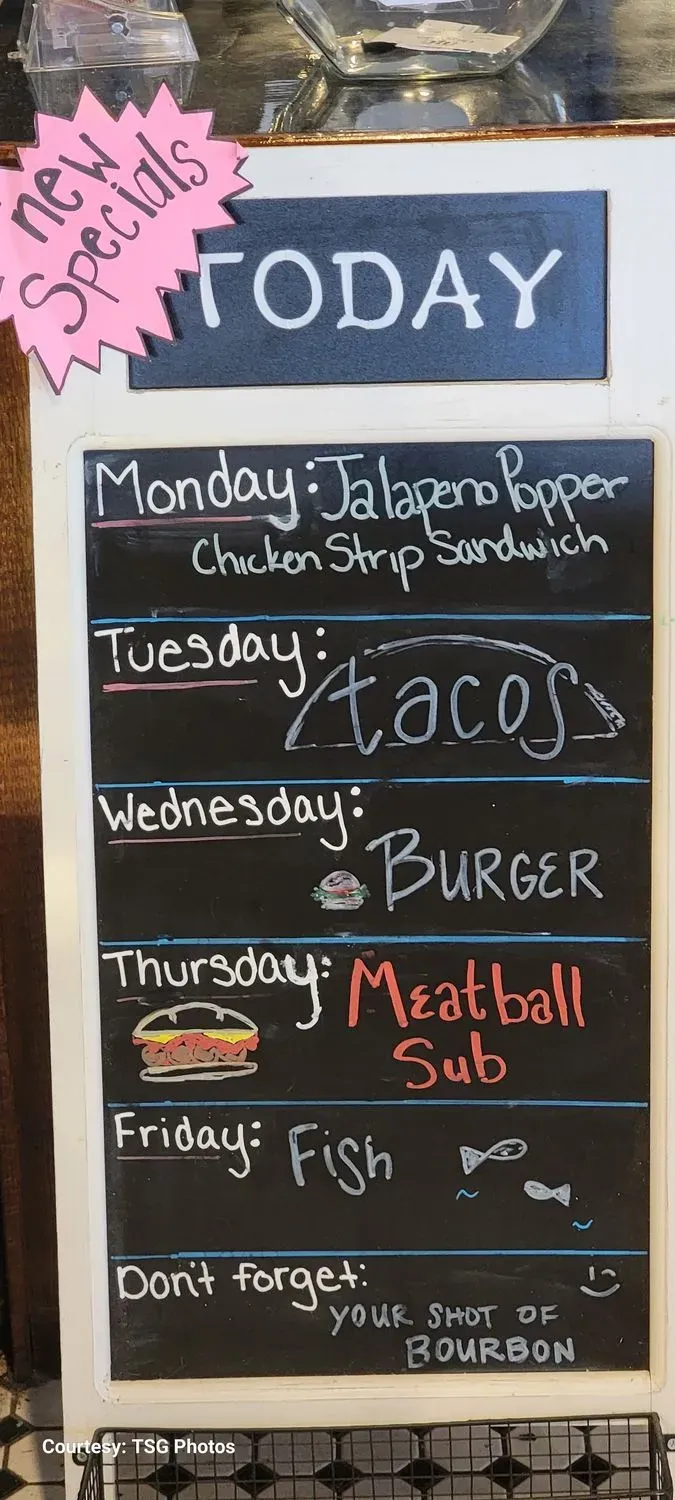 new
Specials
TODAY
Monday: Jalapeno Popper
Chicken Strip Sandwich
Tuesday:
tacos
Wednesday:
BURGER
Thursday: Meatball
Sub
Friday: Fish
Don't forget:
YOUR SHOT OF
BOURBON
Courtesy: TSG Photos